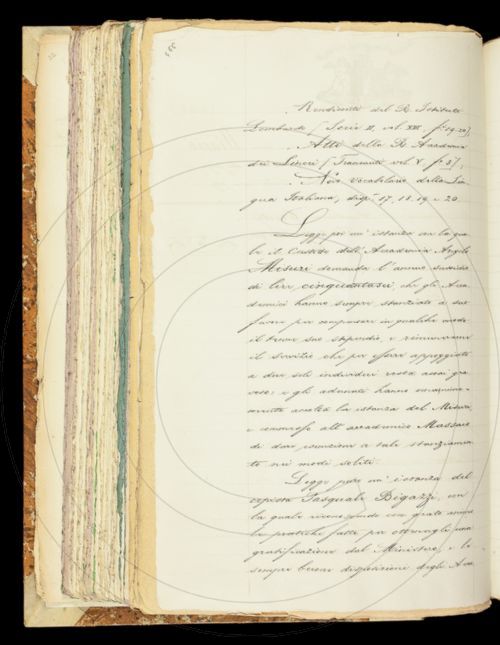 Rendiconti del R. Istituto
Lombardo (Serie II, vol. XIII. f.i 19-20)
Atti della R. Accademia
dei Lincei (Transunti vol. V. f.o 5),
Novo vocabolario della Lin
gua Italiana, disp. 17. 18. 19. e 20.
Legge poi un' istanza con la qua
le il Custode dell' Accademia Angelo
Misuri domanda l' annuo sussidio
di lire cinquantasei, che gli Acca
demici hanno sempre stanziato a suo
favore per compensare in qualche modo
il tenue suo stipendio, e rimunerare
il servizio che per essere appoggiato
a due soli individui resta assai gra
voso: e gli adunati hanno
accolta la istanza del Misuri
e commesso all' accademico Massaro
di dare esecuzione a tale stanziamen
to nei modi soliti.
Legge pure un' istanza del
copista Pasquale Bigazzi, con
la quale con grato animo
le pratiche fatte per ottenergli una
gratificazione dal Ministero, e le
sempre buone disposizioni degli Acca